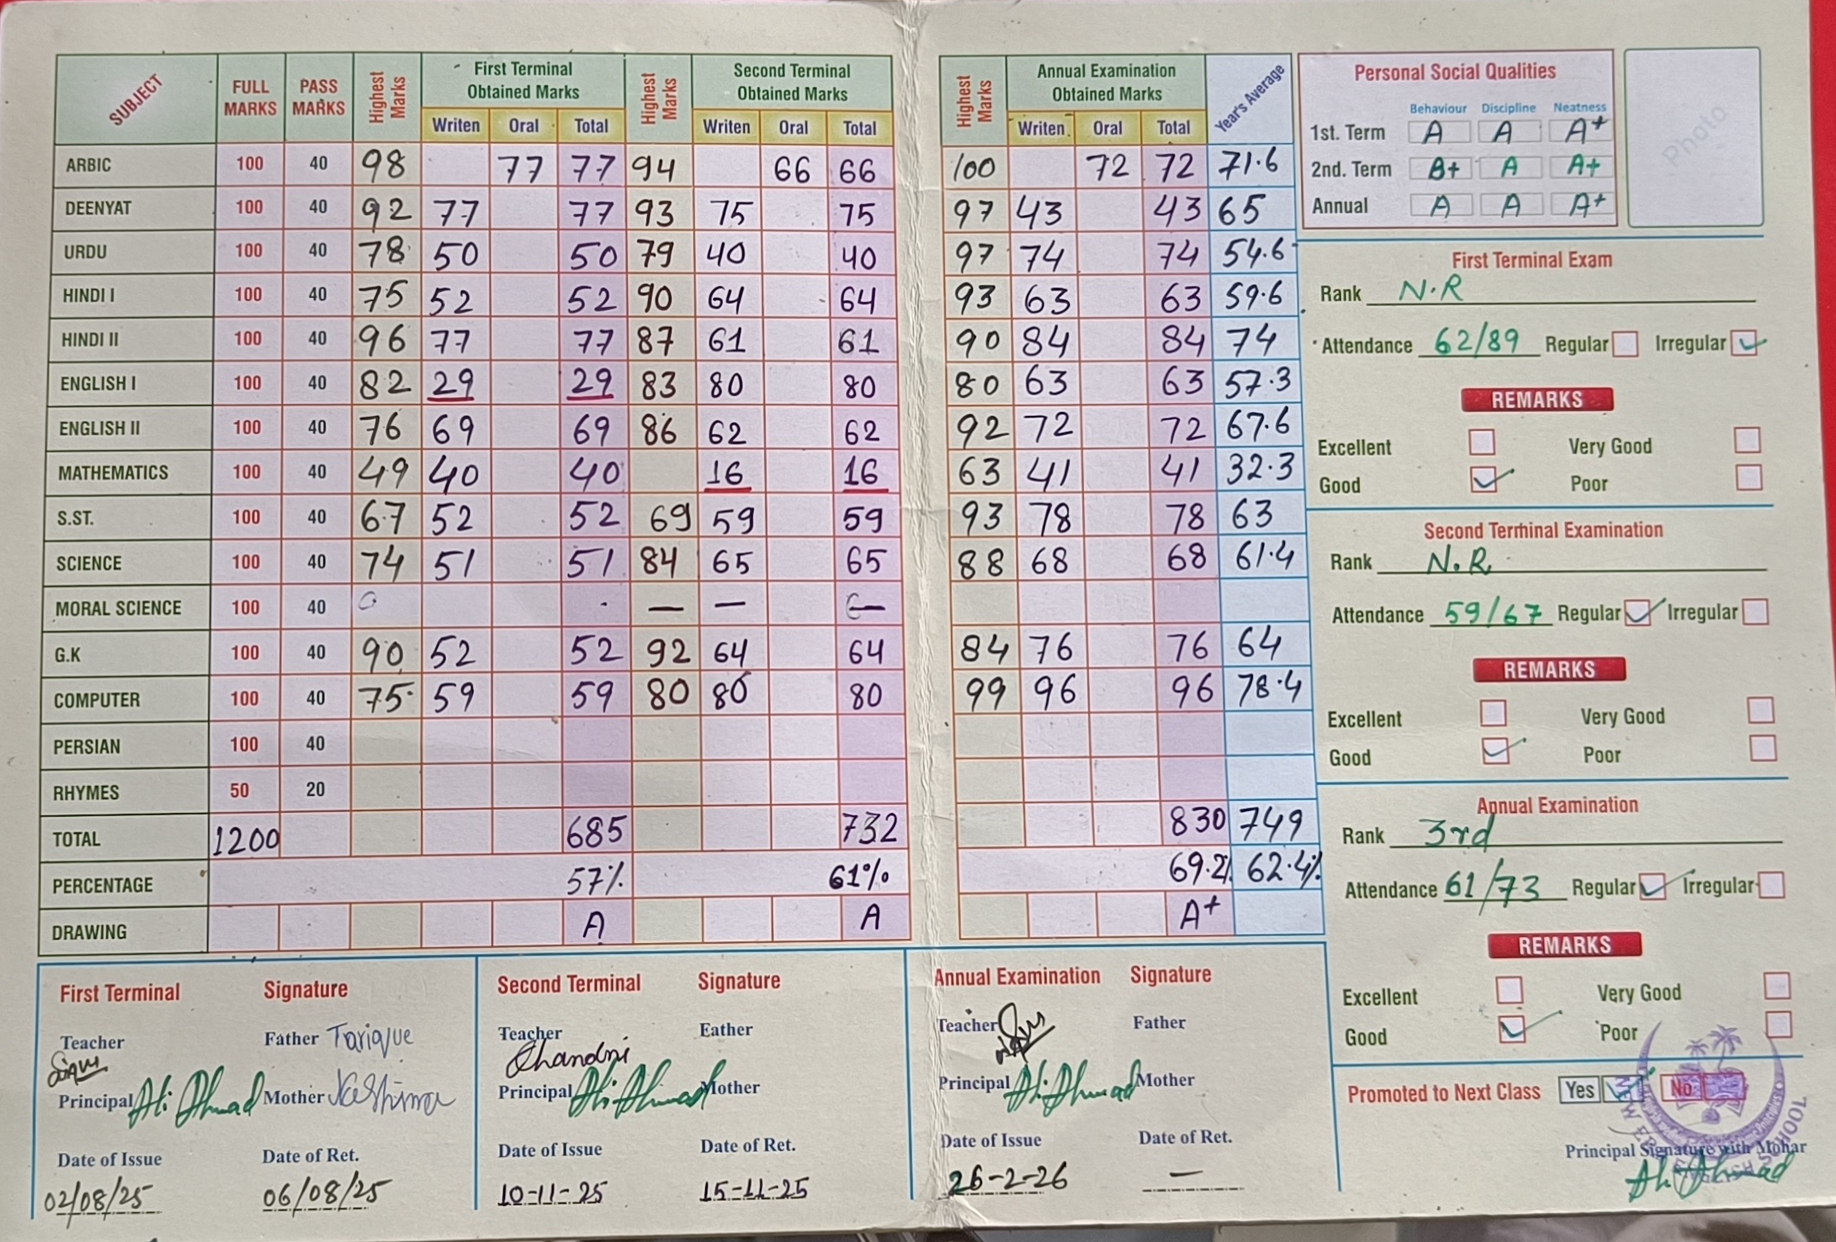 SUBJECT FULL MARKS PASS MARKS Highest Marks First Terminal Obtained Marks Highest Marks Second Terminal Obtained Marks Highest Marks Annual Examination Obtained Marks Year's Average
Writen Oral Total Writen Oral Total Writen Oral Total
ARBIC 100 40 98 77 77 94 66 66 100 72 72 71.6
DEENYAT 100 40 92 77 77 93 75 75 97 43 43 65
URDU 100 40 78 50 50 79 40 40 97 74 74 54.6
HINDI I 100 40 75 52 52 90 64 64 93 63 63 59.6
HINDI II 100 40 96 77 77 87 61 61 90 84 84 74
ENGLISH I 100 40 82 29 29 83 80 80 80 63 63 57.3
ENGLISH II 100 40 76 69 69 86 62 62 92 72 72 67.6
MATHEMATICS 100 40 49 40 40 16 16 63 41 41 32.3
S.ST. 100 40 67 52 52 69 59 59 93 78 78 63
SCIENCE 100 40 74 51 51 84 65 65 88 68 68 61.4
MORAL SCIENCE 100 40 — — —
G.K 100 40 90 52 52 92 64 64 84 76 76 64
COMPUTER 100 40 75 59 59 80 80 80 99 96 96 78.4
PERSIAN 100 40
RHYMES 50 20
TOTAL 1200 685 732 830 749
PERCENTAGE 57% 61% 69.2% 62.4%
DRAWING A A A+
Personal Social Qualities
Behaviour Discipline Neatness
1st. Term A A A+
2nd. Term B+ A A+
Annual A A A+
Photo
First Terminal Exam
Rank N.R
Attendance 62/89 Regular Irregular ✓
REMARKS
Excellent Very Good
Good ✓ Poor
Second Terminal Examination
Rank N.R.
Attendance 59/67 Regular ✓ Irregular
REMARKS
Excellent Very Good
Good ✓ Poor
Annual Examination
Rank 3rd
Attendance 61/73 Regular ✓ Irregular
REMARKS
Excellent Very Good
Good ✓ Poor
Promoted to Next Class Yes ✓ No
Principal Signature with Mohar
Ali Ahmad
First Terminal Signature
Teacher Father Tarique
Principal Ali Ahmad Mother
Date of Issue Date of Ret.
02/08/25 06/08/25
Second Terminal Signature
Teacher Chandni Eather
Principal Ali Ahmad Mother
Date of Issue Date of Ret.
10-11-25 15-11-25
Annual Examination Signature
Teacher Father
Principal Ali Ahmad Mother
Date of Issue Date of Ret.
26-2-26 —